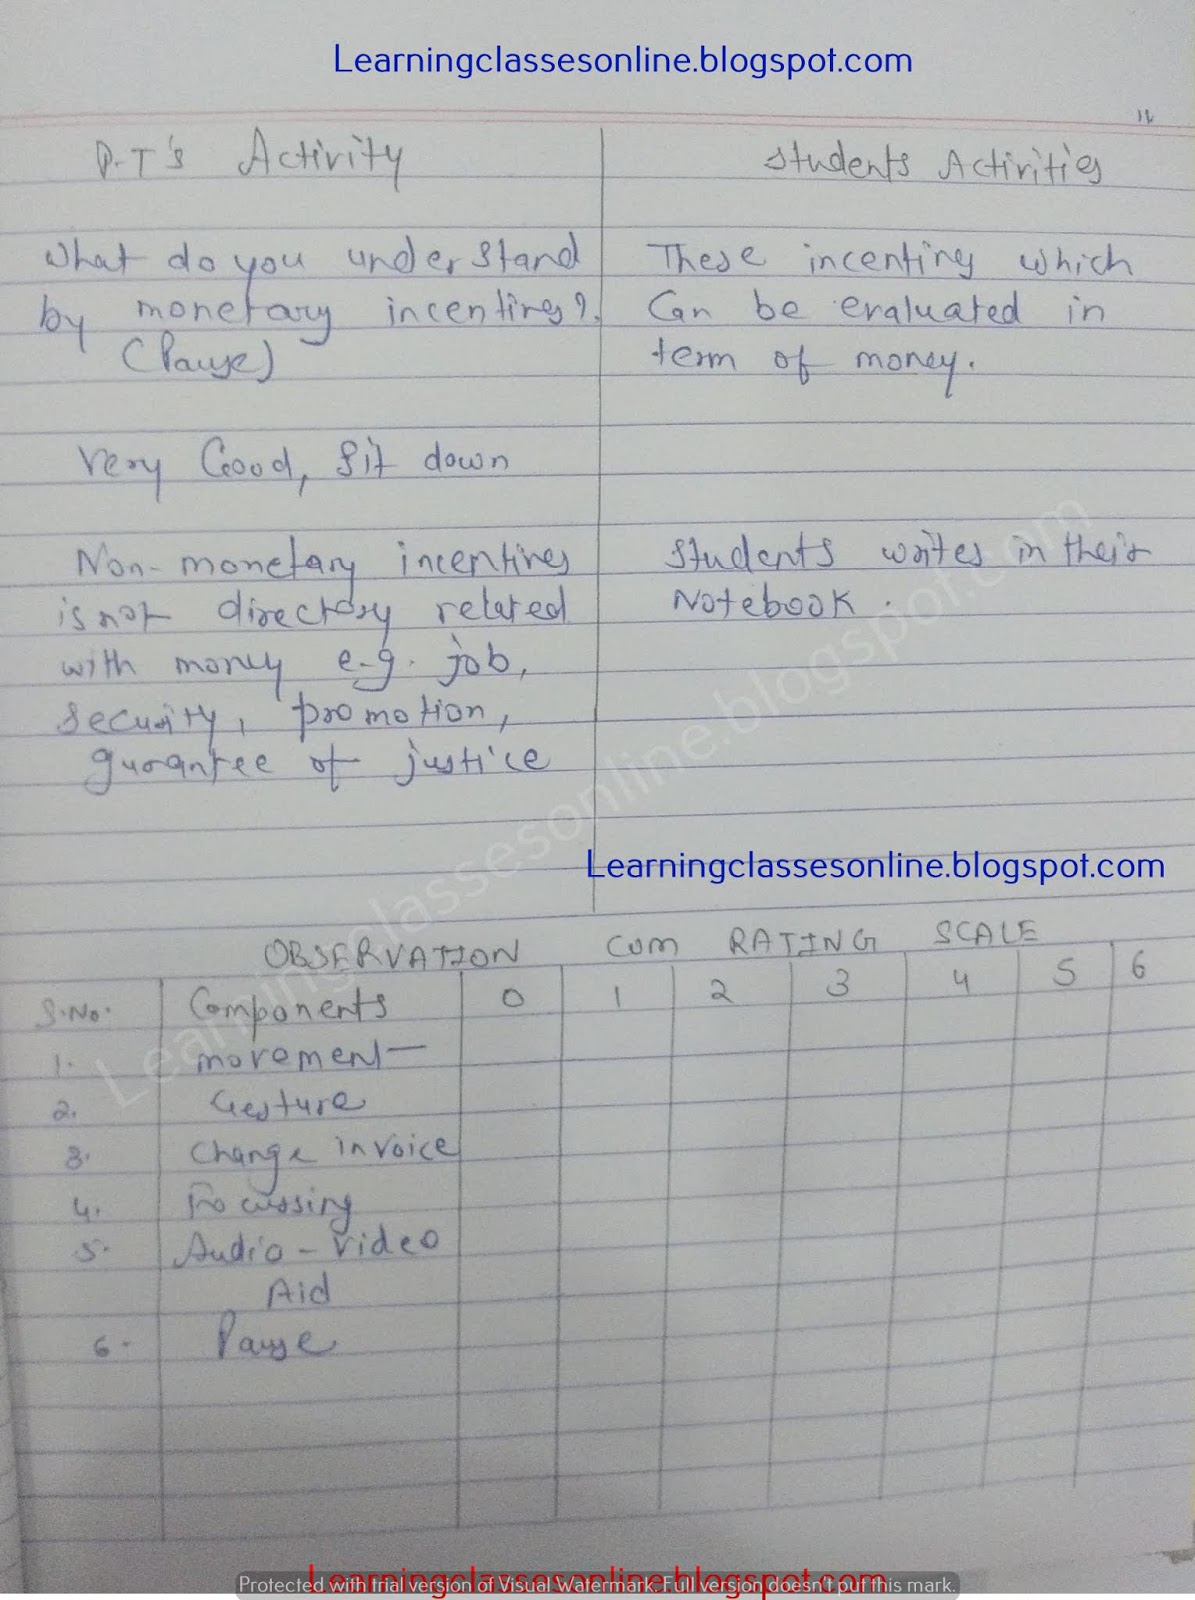 Learningclassesonline.blogspot.com
11
P-T's Activity
Students Activities
What do you understand
by monetary incentives?
(Pause)
These incentives which
Can be evaluated in
term of money.
Very Good, Sit down
Non-monetary incentives
is not directory related
with money e.g. job,
security, promotion,
guarantee of justice
Students writes in their
Notebook.
Learningclassesonline.blogspot.com
Learningclassesonline.blogspot.com
OBSERVATION CUM RATING SCALE
S.No. Components 0 1 2 3 4 5 6
1. movement
2. Gesture
3. Change in voice
4. Focussing
5. Audio-Video
Aid
6. Pause
Learningclassesonline.blogspot.com
Protected with trial version of Visual Watermark. Full version doesn't put this mark.